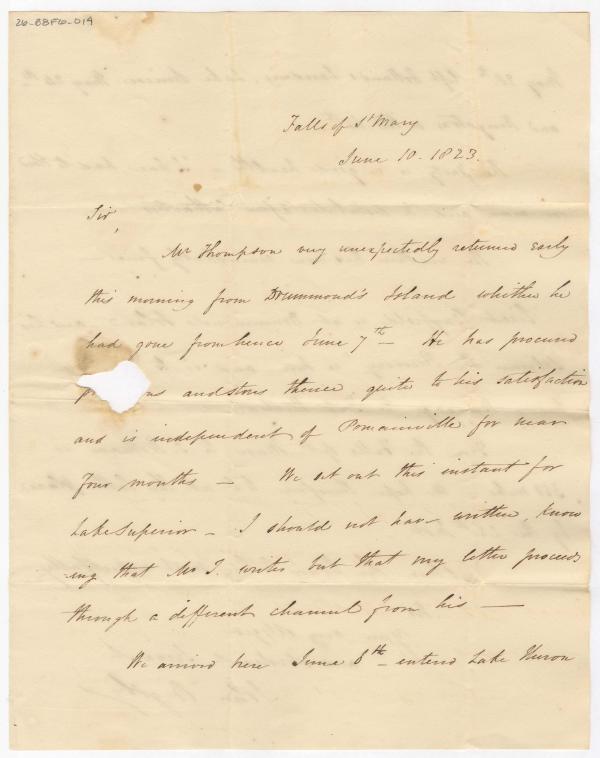 26-BBF6-019
Falls of St Mary
June 10. 1823.
Sir,
Mr Thompson very unexpectedly returned early
this morning from Drummond's Island whither he
had gone from hence June 7th — He has procured
and stores thence, quite to his satisfaction
and is independent of Pomainville for near
four months — We set out this instant for
Lake Superior — I should not have written, know
-ing that Mr T. writes but that my letter proceeds
through a different channel from his —
We arrived here June 6th — entered Lake Huron